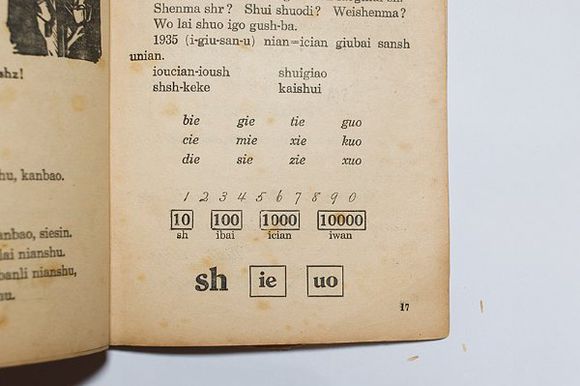 shz!
hu, kanbao.
anbao, siesin.
lai nianshu.
banli nianshu,
nu.
Shenma shr? Shui shuodi? Weishenma?
Wo lai shuo igo gush-ba.
1935 (i-giu-san-u) nian=ician giubai sansh
unian.
ioucian-ioush shuigiao
shsh-keke kaishui
bie gie tie guo
cie mie xie kuo
die sie zie xuo
1 2 3 4 5 6 7 8 9 0
10 100 1000 10000
sh ibai ician iwan
sh ie uo
17